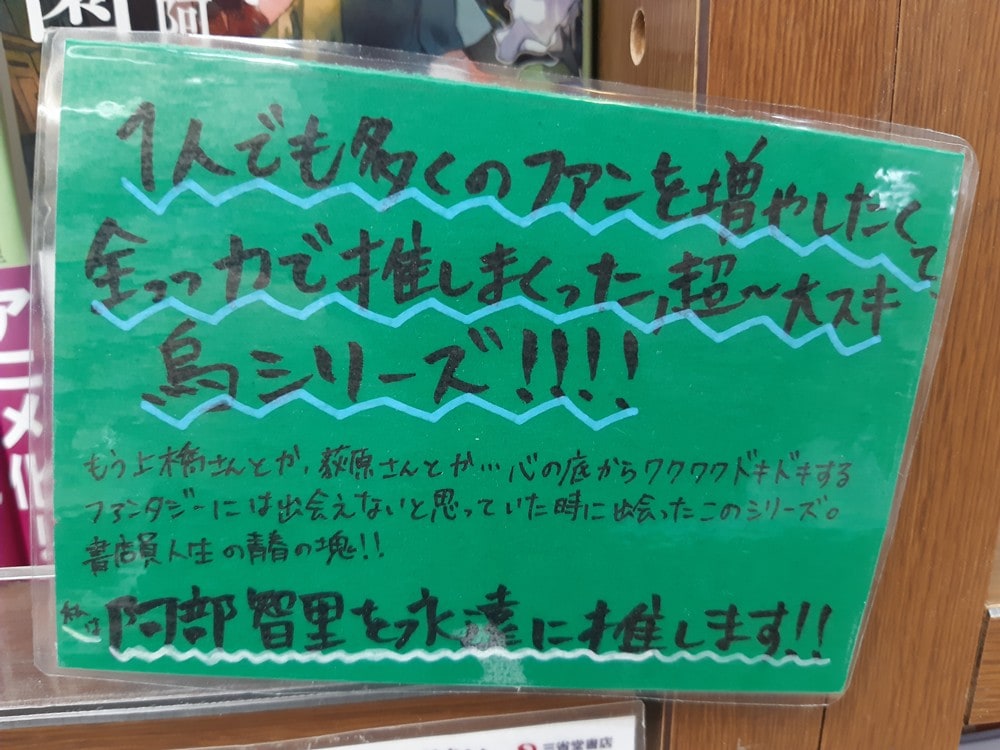 阿
1人でも多くのファンを増やしたくて、
全っ力で推しまくった、超〜大スキ
烏シリーズ!!!!
もう上橋さんとか、荻原さんとか…心の底からワクワクドキドキする
ファンタジーには出会えないと思っていた時に出会ったこのシリーズ。
書店員人生の青春の塊!!
私は阿部智里を永遠に推します!!
アニメ化
三省堂書店